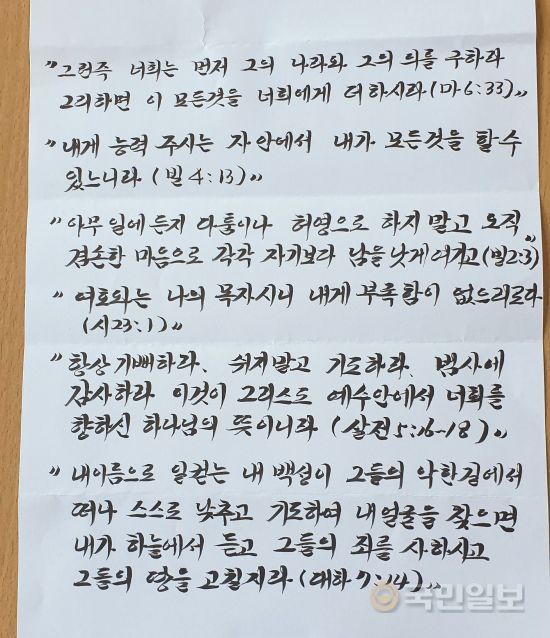 "그런즉 너희는 먼저 그의 나라와 그의 의를 구하라
그리하면 이 모든것을 너희에게 더하시리라(마6:33)"
"내게 능력 주시는 자 안에서 내가 모든것을 할 수
있느니라 (빌4:13)"
"아무 일에든지 다툼이나 허영으로 하지 말고 오직
겸손한 마음으로 각각 자기보다 남을 낫게 여기고(빌2:3)"
"여호와는 나의 목자시니 내게 부족함이 없으리로다
(시23:1)"
"항상 기뻐하라. 쉬지말고 기도하라. 범사에
감사하라 이것이 그리스도 예수안에서 너희를
향하신 하나님의 뜻이니라 (살전5:16-18)"
"내이름으로 일컫는 내 백성이 그들의 악한길에서
떠나 스스로 낮추고 기도하여 내얼굴을 찾으면
내가 하늘에서 듣고 그들의 죄를 사하시고
그들의 땅을 고칠지라(대하7:14)"
국민일보